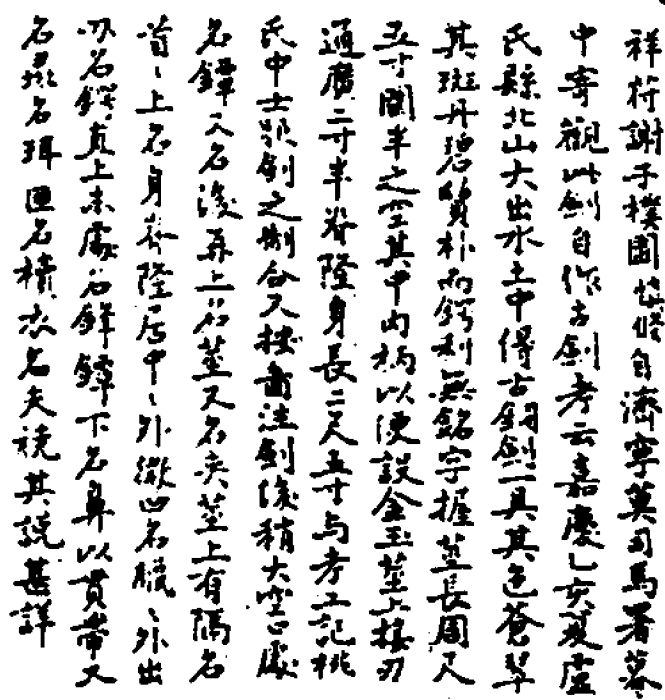 祥符謝子樸園 自濟寧莫司馬署幕
中寄觀此劍自作古劍考云嘉慶乙亥夏盧
氏縣北山大出水土中得古銅劍一具其色蒼翠
其斑丹碧質朴而鍔利無銘字握莖長周尺
五寸圍半之空其中內柄以便設金玉莖上接刃
通廣二寸半脊隆身長二尺五寸與考工記桃
氏中士 劍之制合又按 注劍後稍大空口處
名鐔又名後再上名莖又名夾莖上有隔名
首〻上名身脊隆居中〻外微凹名臘〻外出
刃名鍔直上末處名鋒鐔下名鼻以貫帶又
名 名珥匣名櫝衣名夫襓其說甚詳